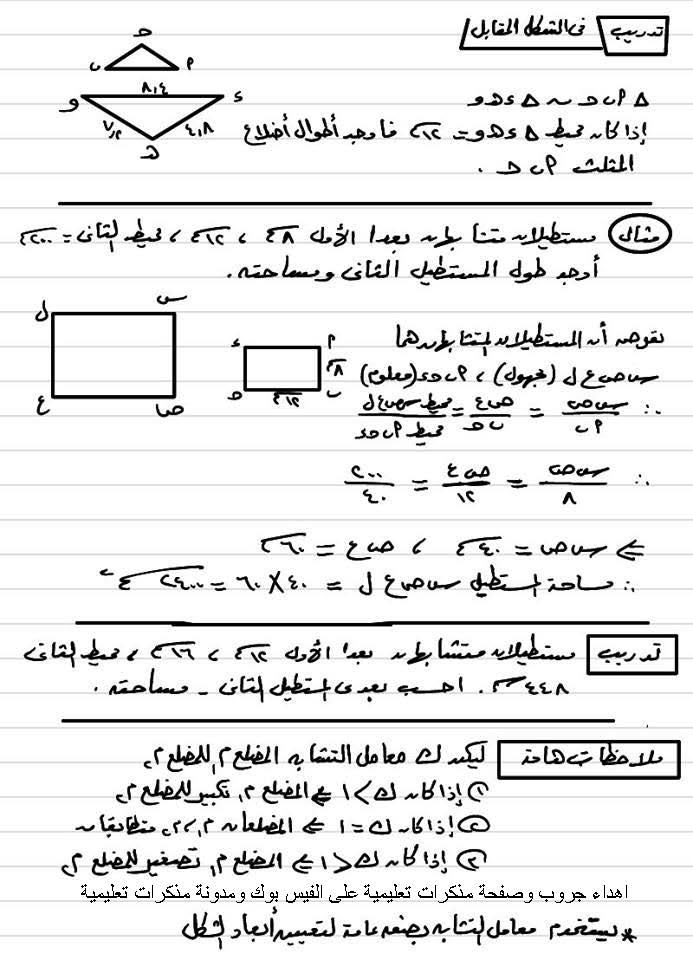 تدريب في الشكل المقابل
ح
ب م
٨,٤
و د
٧,٢ ٤,٨
ه
∆ م ب ح ~ ∆ د ه و
إذا كان محيط ∆ د ه و = ١٢ سم فأوجد أطوال أضلاع
المثلث م ب ح .
مثال مستطيلان متشابهان بعدا الأول ٨ سم ، ١٢ سم ، محيط الثاني = ٢٠٠ سم
أوجد طول المستطيل الثاني ومساحته .
ل س
د م
نفرض أن المستطيلان المتشابهان هما
٨ سم
س ص ع ل (مجهول) ، م ب ح د (معلوم)
ع ص
ح ١٢ سم ب
∴ س ص / م ب = ص ع / ب ح = محيط س ص ع ل / محيط م ب ح د
∴ س ص / ٨ = ص ع / ١٢ = ٢٠٠ / ٤٠
⇐ س ص = ٤٠ سم ، ص ع = ٦٠ سم
∴ مساحة المستطيل س ص ع ل = ٤٠ × ٦٠ = ٢٤٠٠ سم٢
تدريب مستطيلان متشابهان بعدا الأول ١٢ سم ، ١٦ سم ، محيط الثاني
٤٤٨ سم . احسب بعدي المستطيل الثاني - مساحته .
ملاحظات هامة ليكن ك معامل التشابه المضلع م١ للمضلع م٢
① إذا كان ك > ١ ⇐ المضلع م١ تكبير للمضلع م٢
② إذا كان ك = ١ ⇐ المضلعان م١ ، م٢ متطابقان
③ إذا كان ك < ١ ⇐ المضلع م١ تصغير للمضلع م٢
اهداء جروب وصفحة مذكرات تعليمية على الفيس بوك ومدونة مذكرات تعليمية
* يستخدم معامل التشابه بصفه عامة لتعيين أبعاد الشكل